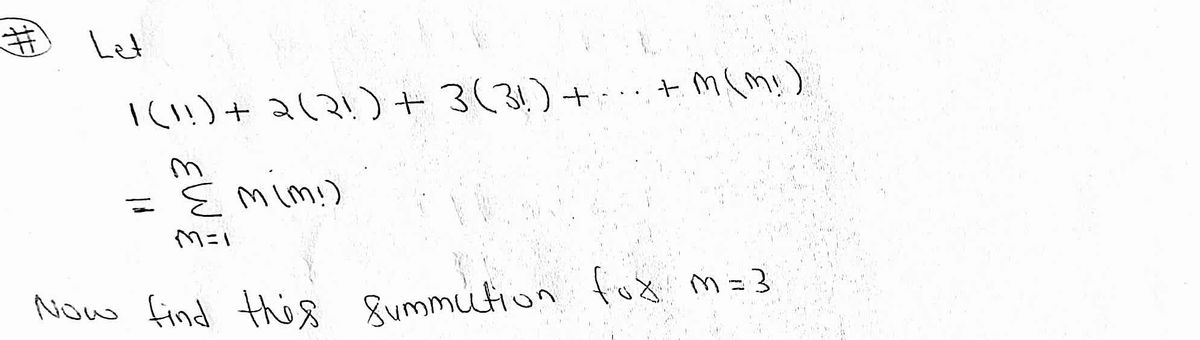 # Let
1(1!) + 2(2!) + 3(3!) + ... + m(m!)
m
= Σ m(m!)
m=1
Now find this summution for m=3